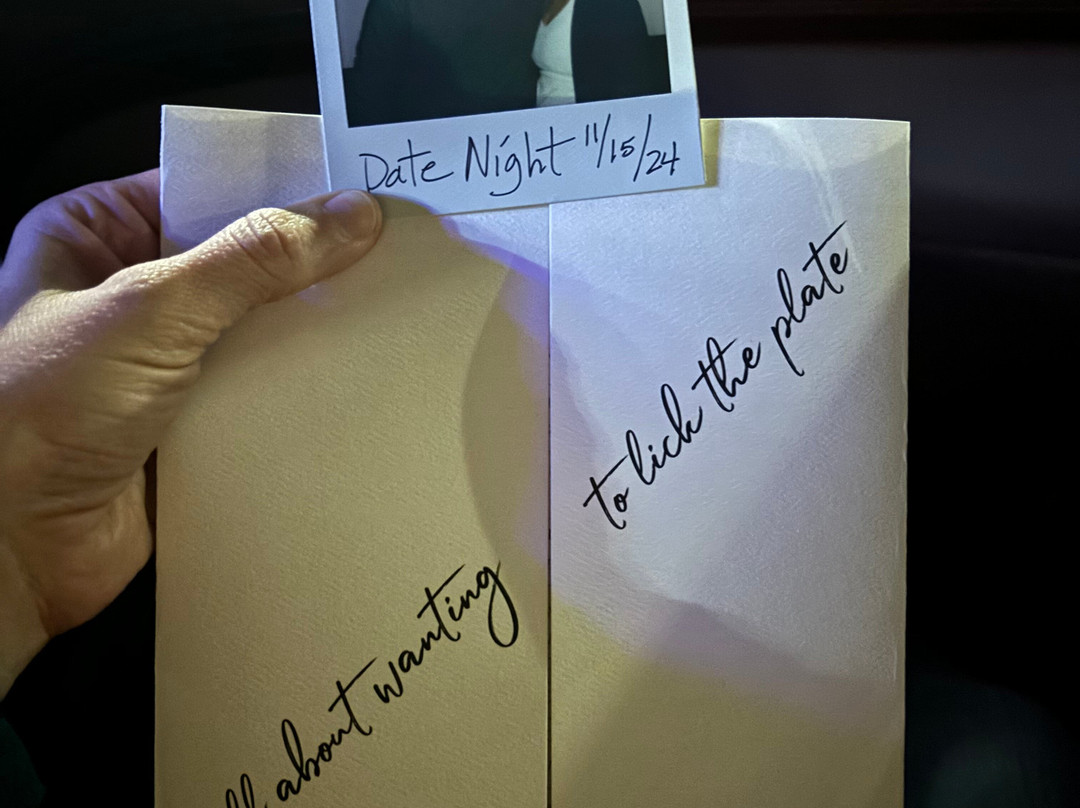 Date Night 11/15/24
about wanting
to lick the plate